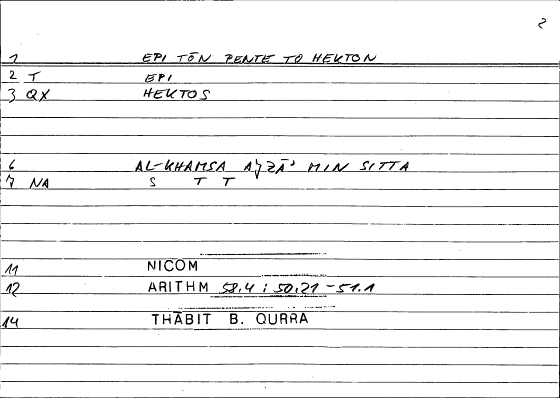 2
1 EPI TŌN PENTE TO HEKTON
2 T EPI
3 QX HEKTOS
6 AL-KHAMSA AǧZĀʾ MIN SITTA
7 NA S T T
11 NICOM
12 ARITHM 58.4 : 50.21 - 51.1
14 THĀBIT B. QURRA